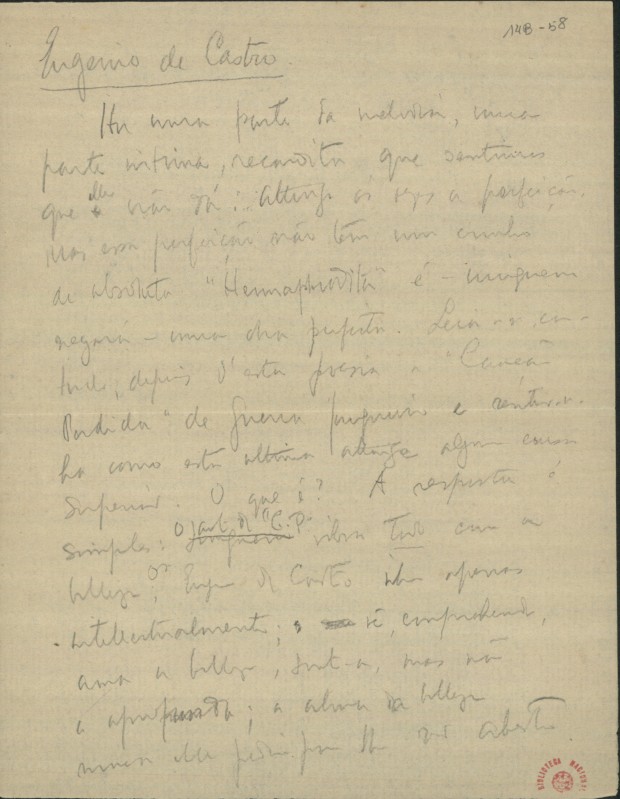 14B-58
Eugenio de Castro.
Ha uma parte da melodia, uma
parte intima, recondita que sentimos
que elle não dá: Attinge ás vezes a perfeição.
Mas essa perfeição não tem um cunho
de absoluta "Hermaphrodita" é - ninguem
negará - uma obra perfeita. Leia-se, con-
tudo, depois d'esta poesia a "Canção
Perdida" de Guerra Junqueiro e sentir-se-
ha como esta ultima attinge alguma cousa
superior. O que é? A resposta é
simples: O aut. da "C.P." vibra todo com a
belleza; Eug. de Castro apenas
intellectualmente; vê, comprehende,
ama a belleza, sente-a, mas não
a aprofunda; a alma da belleza
nunca elle
BIBLIOTECA NACIONAL